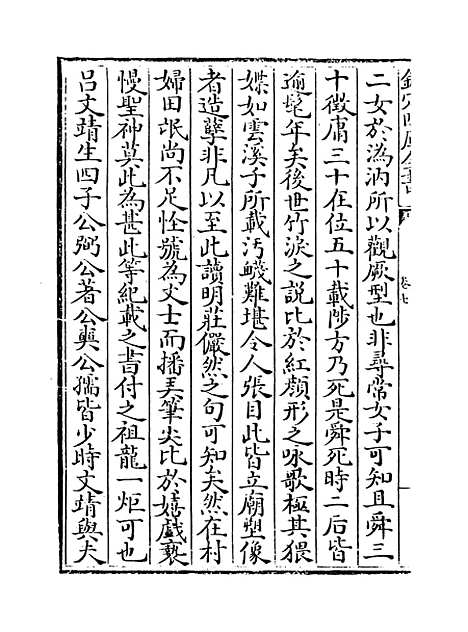 欽定四庫全書
卷七
二女於溈汭所以觀厥型也非尋常女子可知且舜三
十徵庸三十在位五十載陟方乃死是舜死時二后皆
逾髦年矣後世竹淚之説比於紅顔形之咏歌極其猥
媟如雲溪子所載汚衊難堪令人張目此皆立廟塑像
者造孽非凡以至此讀明莊儼然之句可知矣然在村
婦田氓尚不足恠號為文士而播弄筆尖比於嬉戲褻
慢聖神莫此為甚此等紀載之書付之祖龍一炬可也
吕文靖生四子公弼公著公奭公孺皆少時文靖與夫